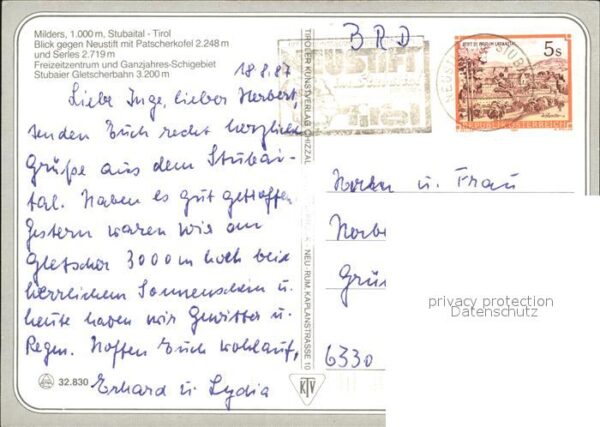 Milders, 1.000 m, Stubaital - Tirol
Blick gegen Neustift mit Patscherkofel 2.248 m
und Serles 2.719 m
Freizeitzentrum und Ganzjahres-Schigebiet
Stubaier Gletscherbahn 3.200 m
18.8.87
Liebe Inge, lieber Herbert,
senden Euch recht herzliche
Grüße aus dem Stubai-
tal. Haben es gut getroffen.
Gestern waren wir am
Gletscher 3000 m hoch bei
herrlichem Sonnenschein u.
heute haben wir Gewitter u.
Regen. Hoffen Euch wohlauf,
Erhard u. Lydia
32.830
TIROLER KUNSTVERLAG CHIZZALI
NEU-RUM, KAPLANSTRASSE 10
KTV
BRD
5s
STIFT ST. PAUL IM LAVANTTAL
REPUBLIK ÖSTERREICH
u. Frau
Grün
6330
privacy protection
Datenschutz